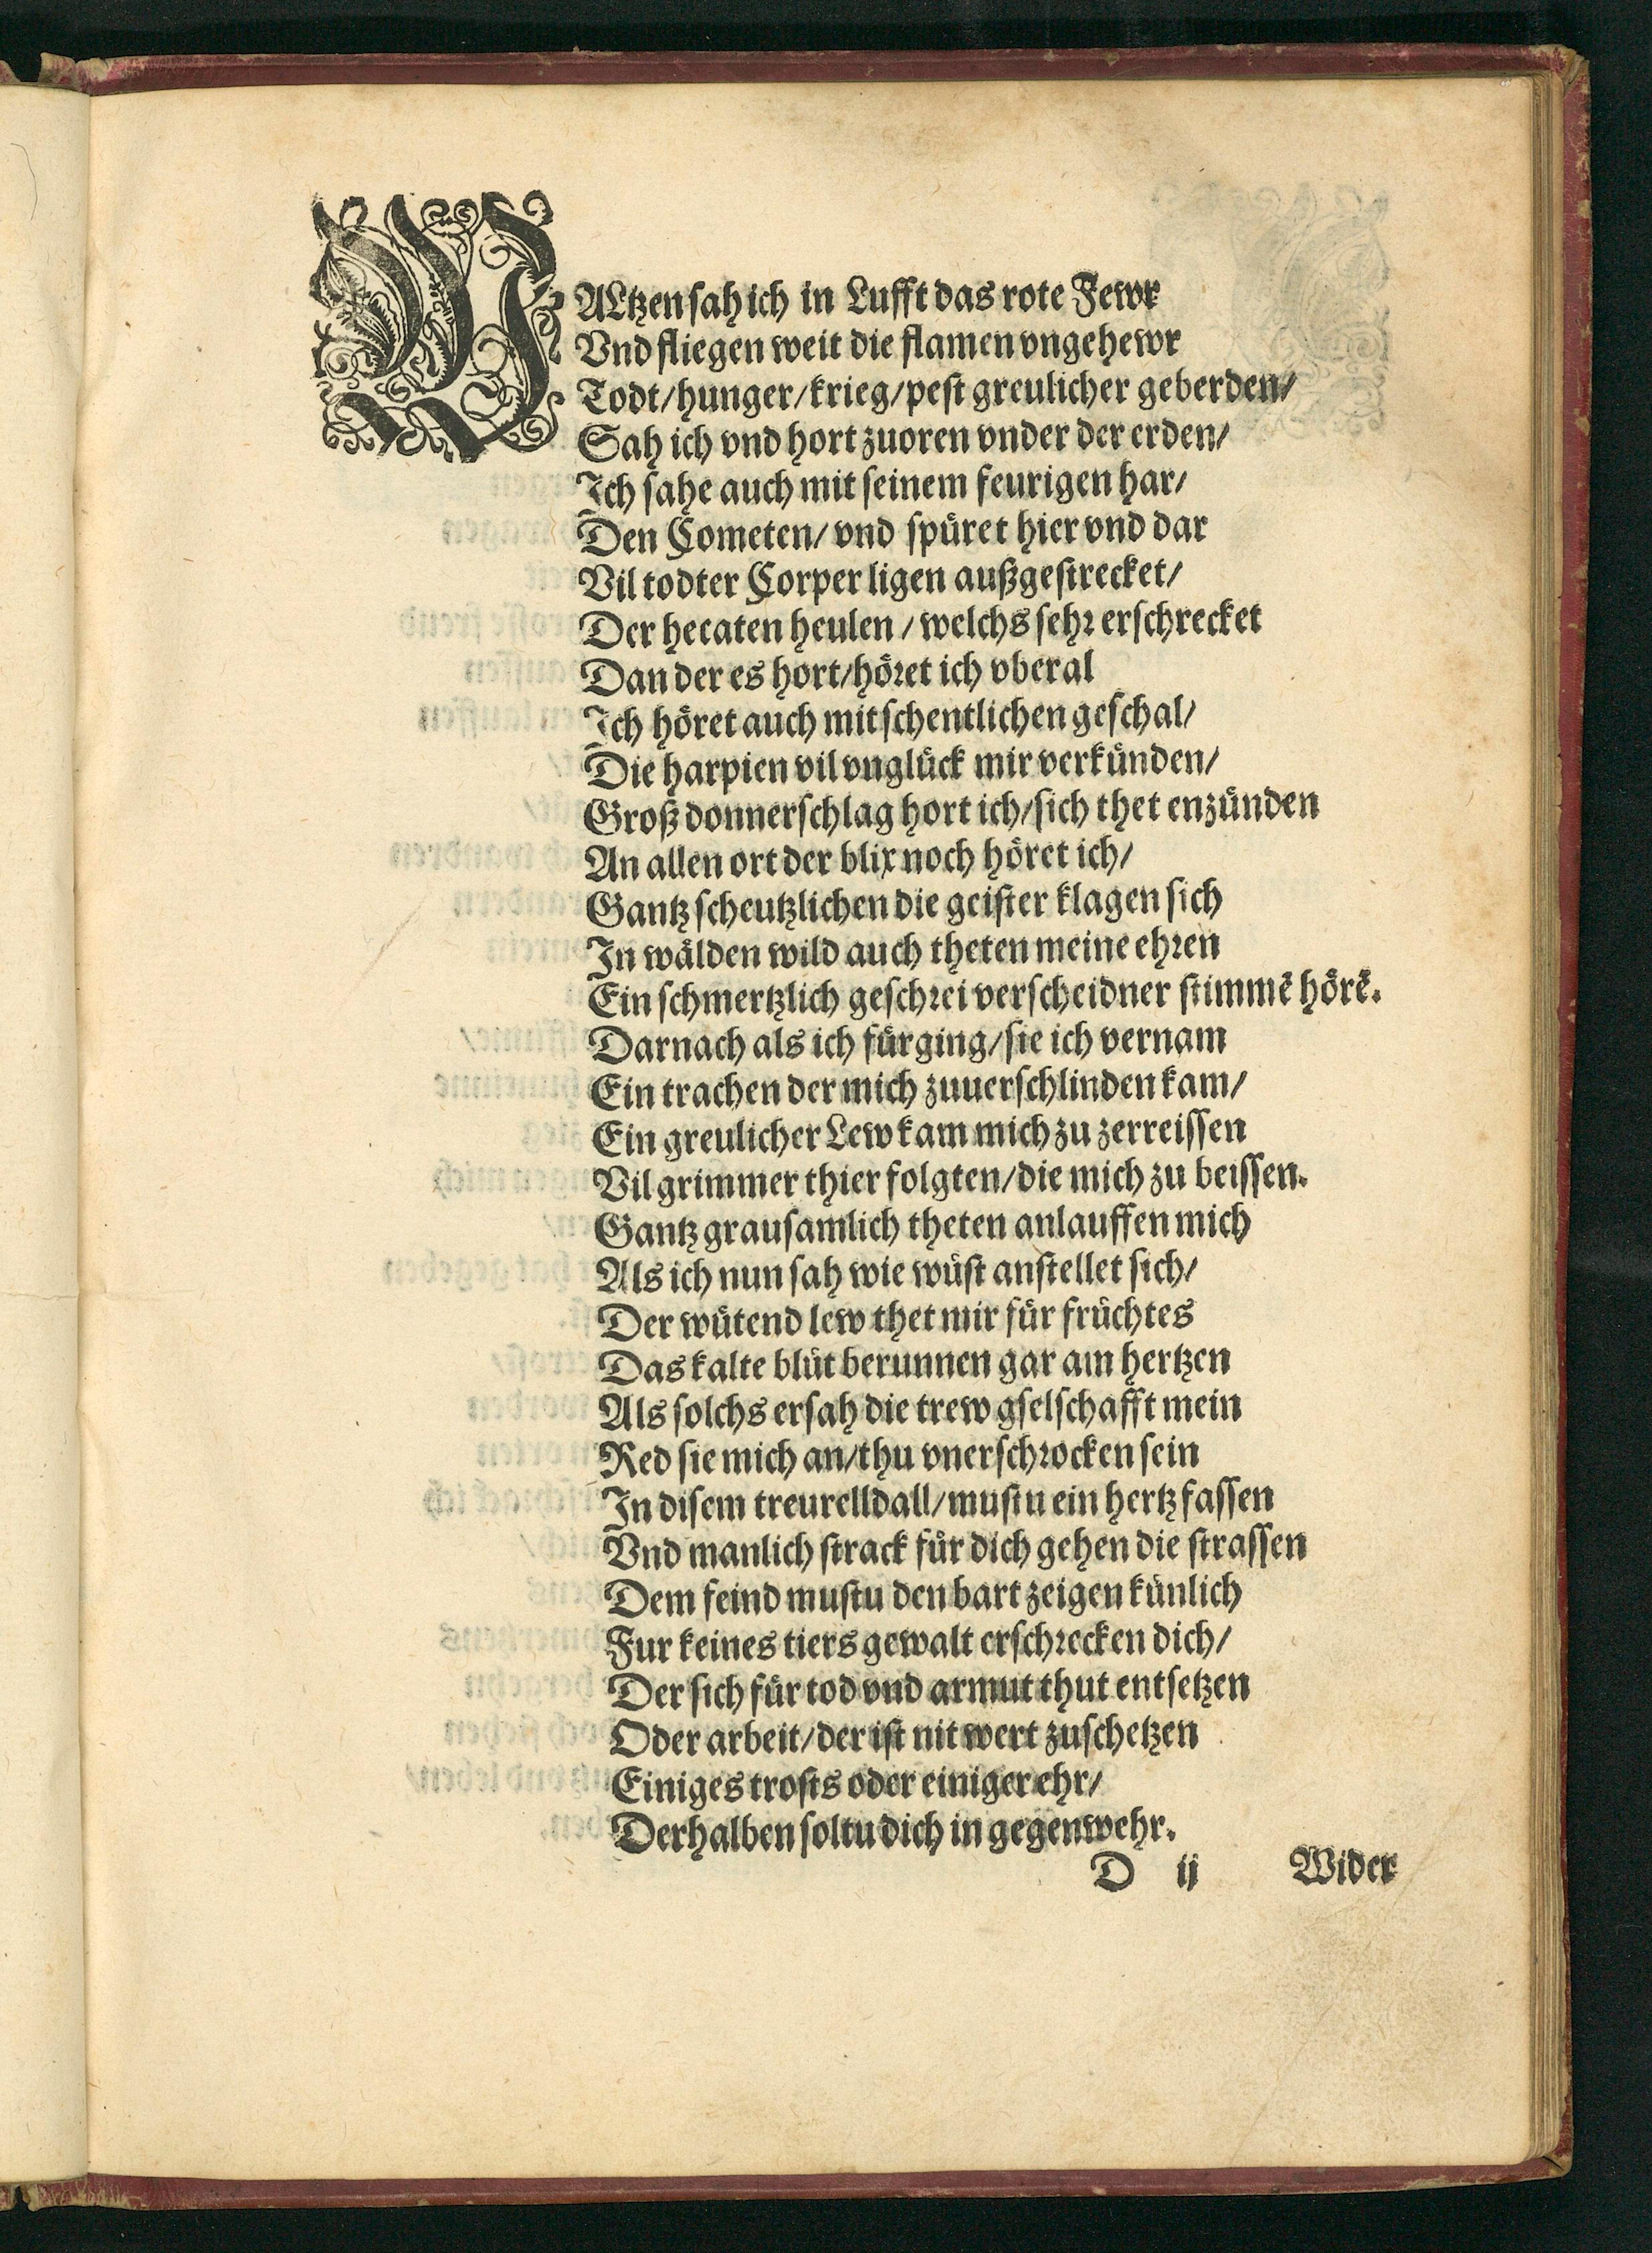 WALtzen sah ich in Lufft das rote Fewr
Vnd fliegen weit die flamen vngehewr
Todt/hunger/krieg/pest greulicher geberden/
Sah ich vnd hort zuoren vnder der erden/
Ich sahe auch mit seinem feurigen har/
Den Cometen/ vnd spüret hier vnd dar
Vil todter Corper ligen außgestrecket/
Der hecaten heulen / welchs sehr erschrecket
Dan der es hort/höret ich vberal
Ich höret auch mit schentlichen geschal/
Die harpien vil vnglück mir verkünden/
Groß donnerschlag hort ich/sich thet enzünden
An allen ort der blix noch höret ich/
Gantz scheutzlichen die geister klagen sich
In wälden wild auch theten meine ehren
Ein schmertzlich geschrei verscheidner stimmē hörē.
Darnach als ich fürging/sie ich vernam
Ein trachen der mich zuuerschlinden kam/
Ein greulicher Lew kam mich zu zerreissen
Vil grimmer thier folgten/die mich zu beissen.
Gantz grausamlich theten anlauffen mich
Als ich nun sah wie wüst anstellet sich/
Der wütend lew thet mir für früchtes
Das kalte blüt berunnen gar am hertzen
Als solchs ersah die trew gselschafft mein
Red sie mich an/thu vnerschrocken sein
In disem treurelldall/mustu ein hertz fassen
Vnd manlich strack für dich gehen die strassen
Dem feind mustu den bart zeigen künlich
Fur keines tiers gewalt erschrecken dich/
Der sich für tod vnd armut thut entsetzen
Oder arbeit/der ist nit wert zuschetzen
Einiges trosts oder einiger ehr/
Derhalben soltu dich in gegenwehr.
D ij Wider